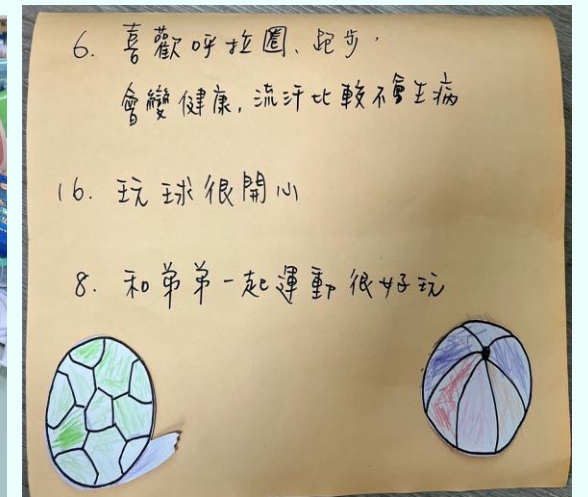 6. 喜歡呼拉圈、跑步，
會變健康，流汗比較不會生病
16. 玩球很開心
8. 和弟弟一起運動很好玩